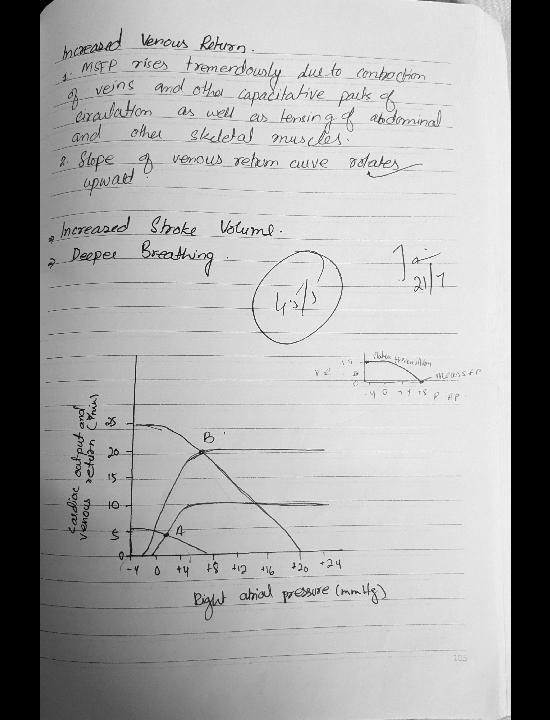 Increased Venous Return.
1. MSFP rises tremendously due to contraction
of veins and other capacitative parts of
circulation as well as tensing of abdominal
and other skeletal muscles.
2. Slope of venous return curve rotates
upward.
Increased Stroke Volume.
Deeper Breathing.
21/7
Cardiac output and
venous return (l/min)
25
20
15
10
5
0
B
A
-4 0 +4 +8 +12 +16 +20 +24
Right atrial pressure (mmHg)
105